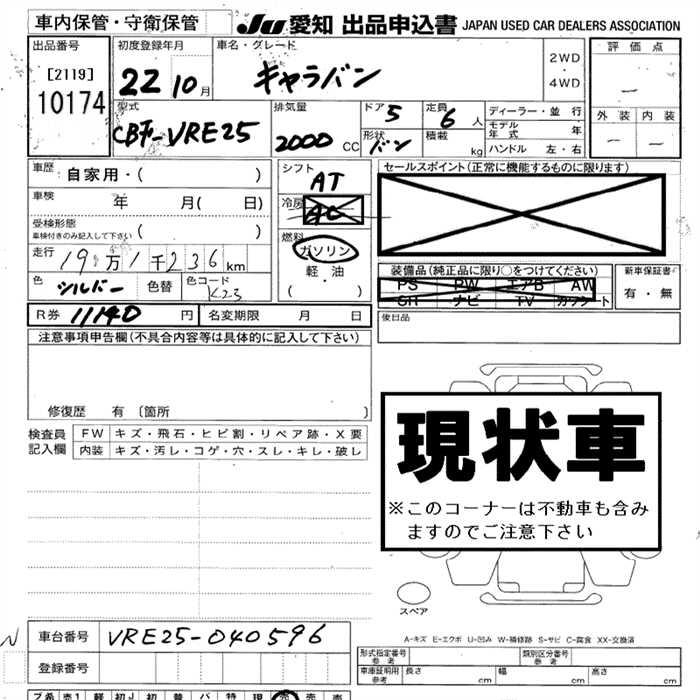 車内保管・守衛保管
JU 愛知 出品申込書 JAPAN USED CAR DEALERS ASSOCIATION
出品番号
[2119]
10174
初度登録年月
22 10月
車名・グレード
キャラバン
2WD
・
4WD
評価点
—
外装 内装
— —
型式
CBF-VRE25
排気量
2000 CC
ドア 5
形状 バン
定員 6 人
積載 kg
ディーラー・並行
モデル年式 年
ハンドル 左・右
車歴 自家用・( )
車検 年 月( 日)
受検形態
車検付きのみ記入して下さい ( )
走行 19万1千236km
色 シルバー 色替 色コード K23
シフト AT
冷房 AC
燃料
ガソリン
軽・油
( )
セールスポイント (正常に機能するものに限ります)
装備品 (純正品に限り○をつけてください)
PS PW エアB AW
SR ナビ TV カワシート
新車保証書
有・無
R券 11140 円 名変期限 月 日
後日品
注意事項申告欄 (不具合内容等は具体的に記入して下さい)
修復歴 有 〔箇所 〕
検査員記入欄
FW キズ・飛石・ヒビ割・リペア跡・X要
内装 キズ・汚レ・コゲ・穴・スレ・キレ・破レ
現状車
※このコーナーは不動車も含み
ますのでご注意下さい
スペア
A-キズ E-エクボ U-凹み W-補修跡 S-サビ C-腐食 XX-交換済
車台番号 VRE25-040596
登録番号
形式指定番号 参考
類別区分番号 参考
車庫証明用 参考 長さ cm 幅 cm 高さ cm